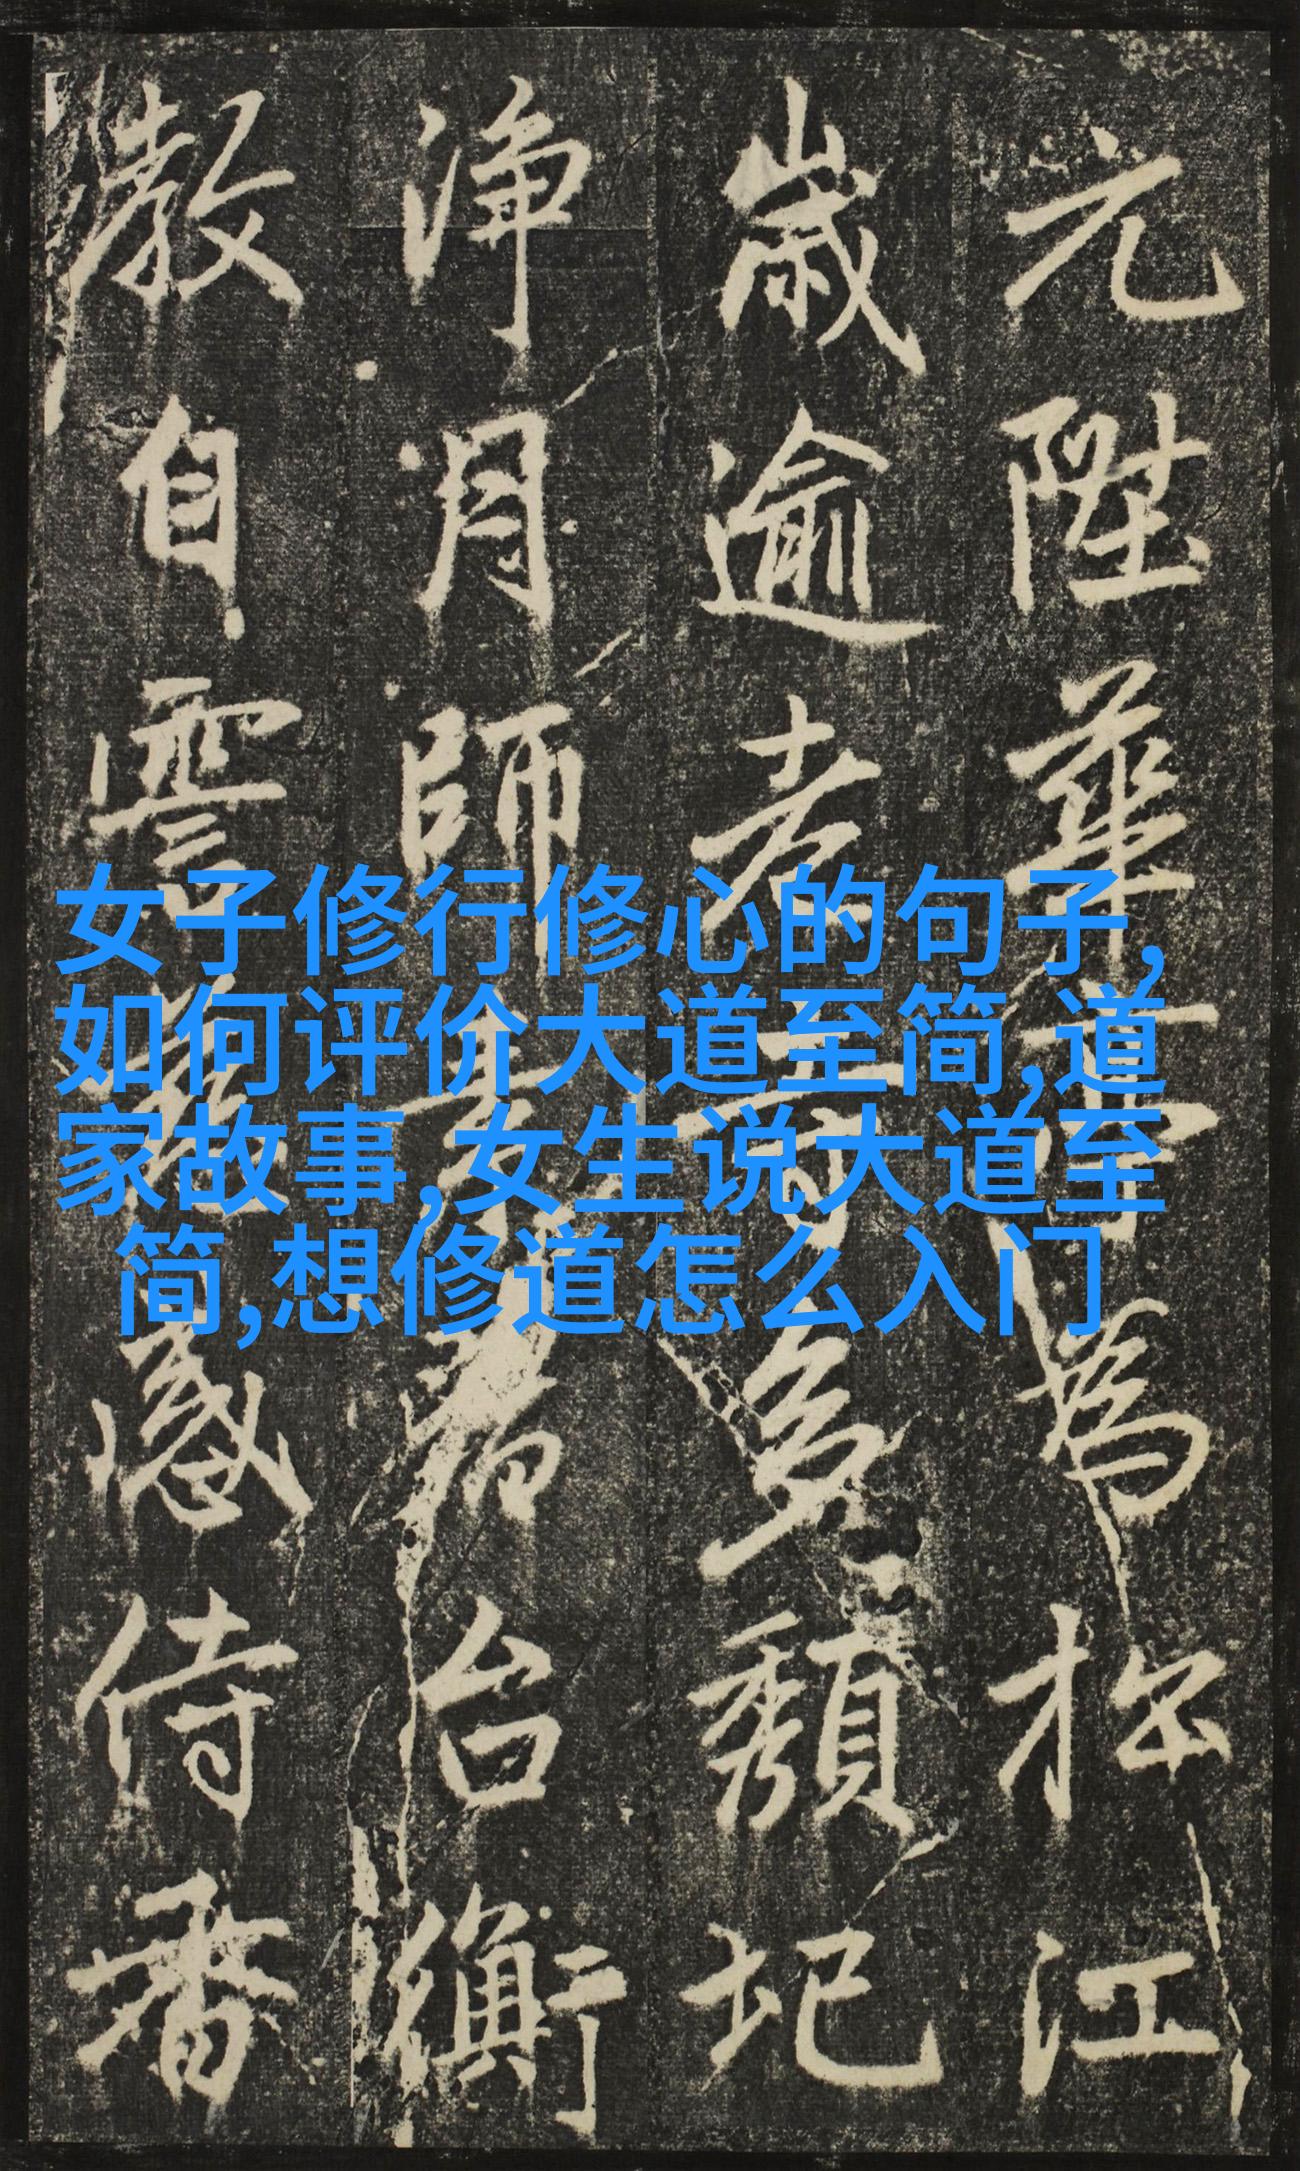 元陞華省為於江
歲逾老而多頹圮
淨月師表者台衡
教自雲 感侍香
女子修行修心的句子,
如何评价大道至简,道
家故事,女生说大道至
简,想修道怎么入门